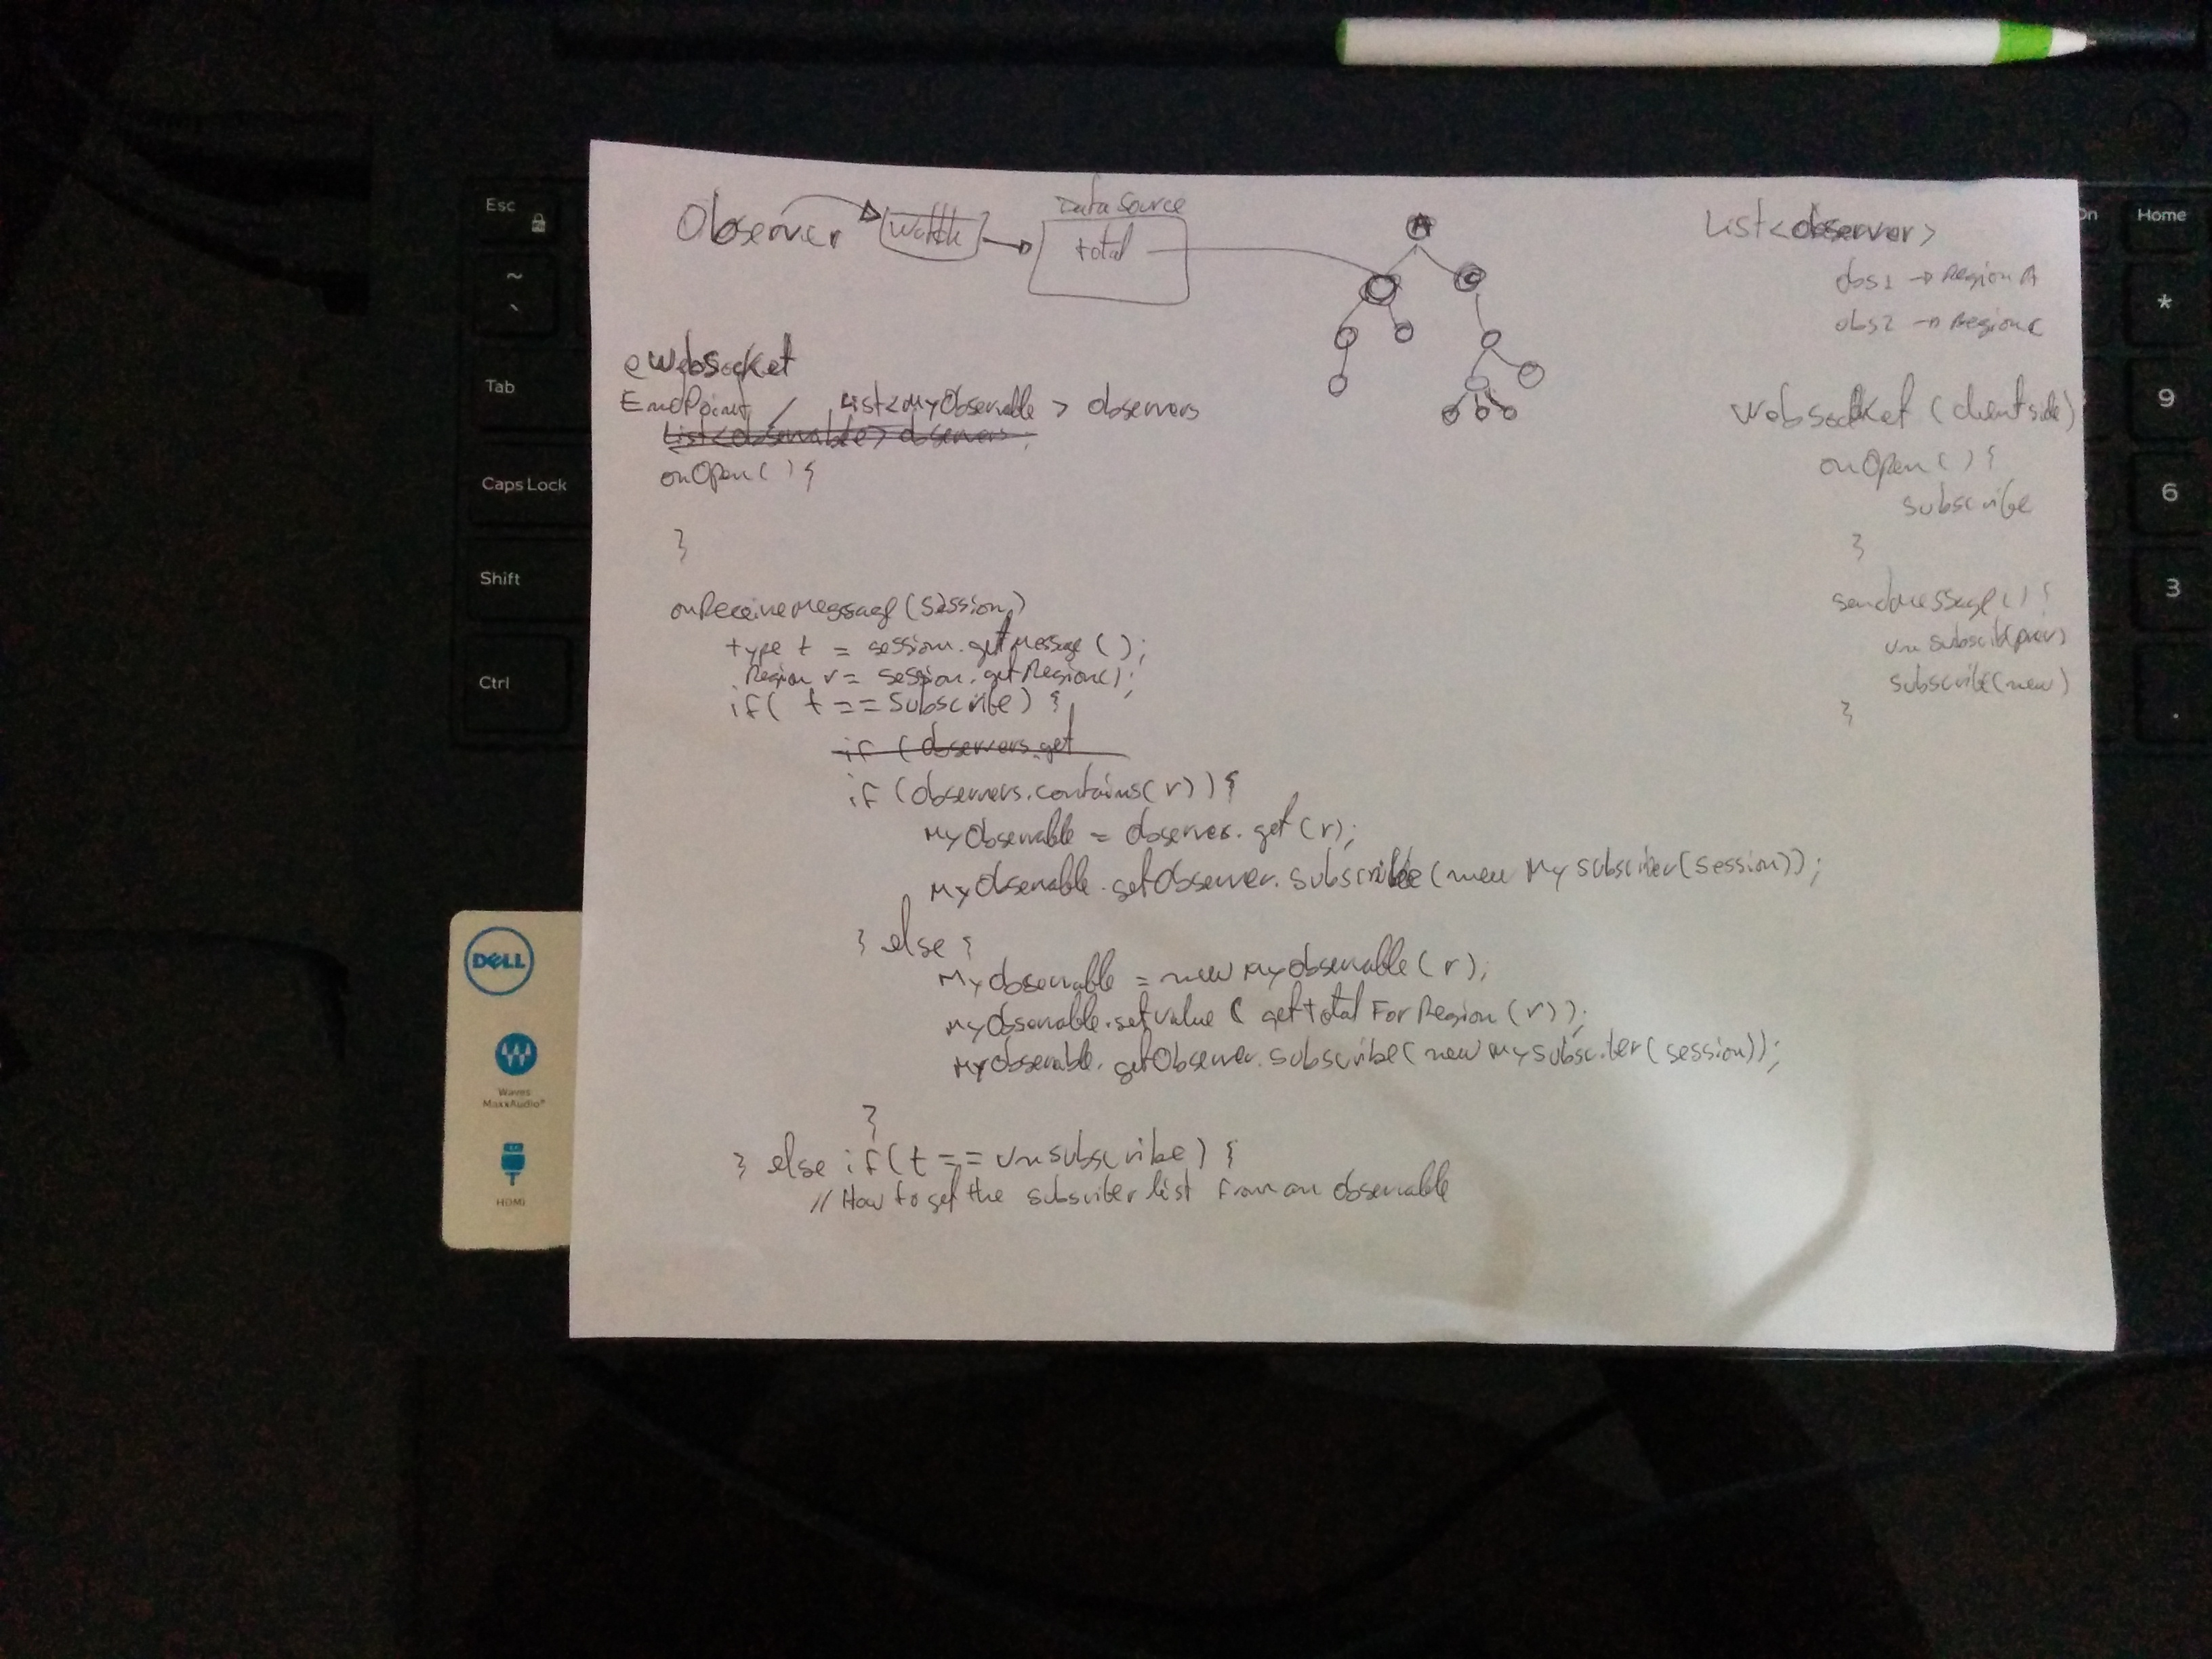 Observer
watch
Data Source
total
A
C
List<observer>
obs1 → Region A
obs2 → Region C
@WebSocket
EndPoint
List<MyObservable> observers
List<observable> observers;
onOpen() {
}
onReceiveMessage(Session)
type t = session.getMessage();
Region r = session.getRegion();
if( t == Subscribe) {
if (observers.get
if (observers.contains(r)) {
MyObservable = observer.get(r);
MyObservable.getObserver.subscribe(new MySubscriber(session));
} else {
MyObservable = new MyObservable(r);
MyObservable.setvalue ( getTotalForRegion(r));
MyObservable.getObserver.subscribe(new MySubsciber(session));
}
} else if(t == unsubscribe) {
// How to get the subsriber list from an observable
Websocket (client side)
onOpen() {
subscribe
}
sendMessage() {
unsubscribe(prev)
subscribe(new)
}
Esc
~
`
Tab
Caps Lock
Shift
Ctrl
Home
*
9
6
3
.
DELL
Waves
MaxxAudio®
HDMI